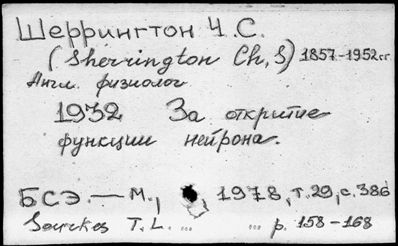 Шеррингтон Ч.С.
(Sherrington Ch, S) 1857-1952 гг
Англ. физиолог
1932 За открытие
функции нейрона.
БСЭ. — М., 1978, т.29, с.386
Sourkes T.L. ... ... p. 158-168